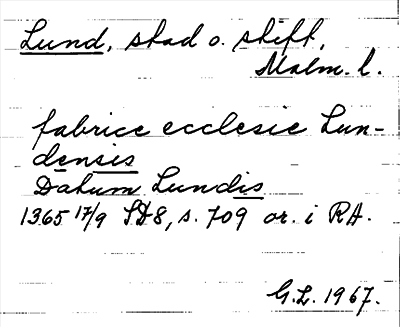 Lund, stad o. stift,
Malm. l.
fabrice ecclesie Lun-
densis
Datum Lundis
1365 17/9 SD8, s. 709 or. i RA.
G.L. 1967.